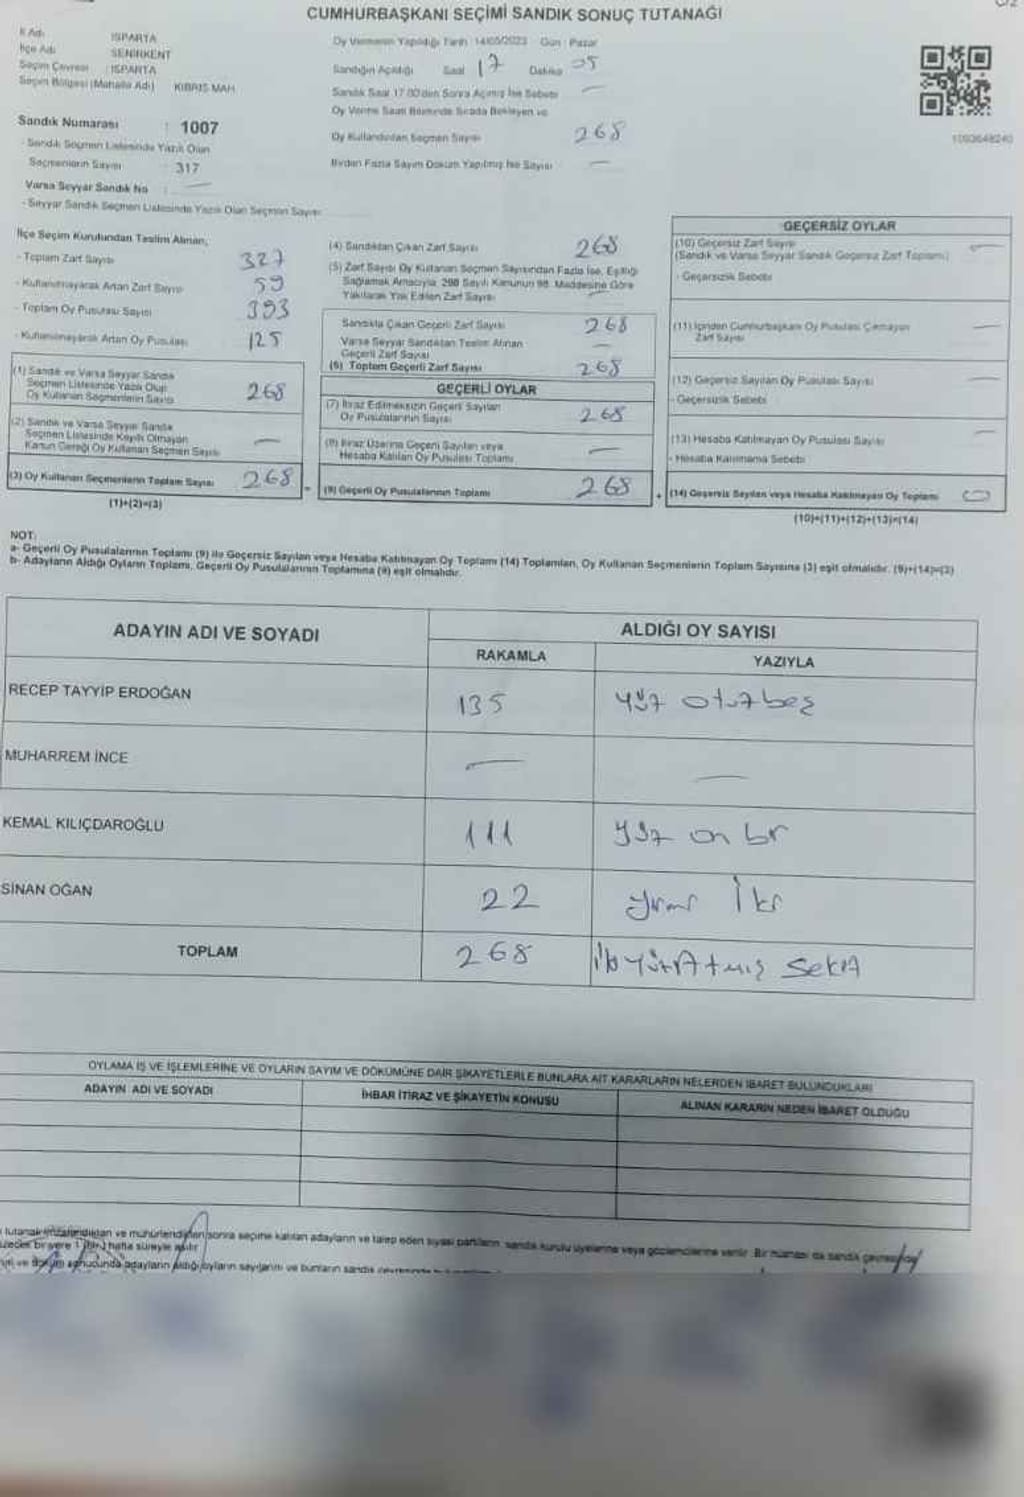 CUMHURBAŞKANI SEÇİMİ SANDIK SONUÇ TUTANAĞI
İl Adı ISPARTA
İlçe Adı SENİRKENT
Seçim Çevresi : ISPARTA
Seçim Bölgesi (Mahalle Adı) KIBRIS MAH.
Sandık Numarası : 1007
- Sandık Seçmen Listesinde Yazılı Olan
Seçmenlerin Sayısı 317
Varsa Seyyar Sandık No : —
- Seyyar Sandık Seçmen Listesinde Yazılı Olan Seçmen Sayısı
Oy Vermenin Yapıldığı Tarih 14/05/2023 Gün : Pazar
Sandığın Açıldığı Saat 17 Dakika 05
Sandık Saat 17.00'den Sonra Açılmış İse Sebebi —
Oy Verme Saati Bitiminde Sırada Bekleyen ve
Oy Kullandırılan Seçmen Sayısı 268
Birden Fazla Sayım Döküm Yapılmış İse Sayısı —
1093648240
İlçe Seçim Kurulundan Teslim Alınan;
- Toplam Zarf Sayısı 327
- Kullanılmayarak Artan Zarf Sayısı 59
- Toplam Oy Pusulası Sayısı 393
- Kullanılmayarak Artan Oy Pusulası 125
(1) Sandık ve Varsa Seyyar Sandık
Seçmen Listesinde Yazılı Olup
Oy Kullanan Seçmenlerin Sayısı 268
(2) Sandık ve Varsa Seyyar Sandık
Seçmen Listesinde Kayıtlı Olmayan
Kanun Gereği Oy Kullanan Seçmen Sayısı —
(3) Oy Kullanan Seçmenlerin Toplam Sayısı 268
(1)+(2)=(3)
(4) Sandıktan Çıkan Zarf Sayısı 268
(5) Zarf Sayısı Oy Kullanan Seçmen Sayısından Fazla İse, Eşitliği
Sağlamak Amacıyla, 298 Sayılı Kanunun 98. Maddesine Göre
Yakılarak Yok Edilen Zarf Sayısı —
Sandıkta Çıkan Geçerli Zarf Sayısı 268
Varsa Seyyar Sandıktan Teslim Alınan
Geçerli Zarf Sayısı —
(6) Toplam Geçerli Zarf Sayısı 268
GEÇERLİ OYLAR
(7) İtiraz Edilmeksizin Geçerli Sayılan
Oy Pusulalarının Sayısı 268
(8) İtiraz Üzerine Geçerli Sayılan veya
Hesaba Katılan Oy Pusulası Toplamı —
= (9) Geçerli Oy Pusulalarının Toplamı 268
GEÇERSİZ OYLAR
(10) Geçersiz Zarf Sayısı —
(Sandık ve Varsa Seyyar Sandık Geçersiz Zarf Toplamı)
- Geçersizlik Sebebi
(11) İçinden Cumhurbaşkanı Oy Pusulası Çıkmayan —
Zarf Sayısı
(12) Geçersiz Sayılan Oy Pusulası Sayısı —
- Geçersizlik Sebebi
(13) Hesaba Katılmayan Oy Pusulası Sayısı —
- Hesaba Katılmama Sebebi
+ (14) Geçersiz Sayılan veya Hesaba Katılmayan Oy Toplamı 0
(10)+(11)+(12)+(13)=(14)
NOT:
a- Geçerli Oy Pusulalarının Toplamı (9) ile Geçersiz Sayılan veya Hesaba Katılmayan Oy Toplamı (14) Toplamları, Oy Kullanan Seçmenlerin Toplam Sayısına (3) eşit olmalıdır. (9)+(14)=(3)
b- Adayların Aldığı Oyların Toplamı, Geçerli Oy Pusulalarının Toplamına (9) eşit olmalıdır.
ADAYIN ADI VE SOYADI ALDIĞI OY SAYISI
RAKAMLA YAZIYLA
RECEP TAYYİP ERDOĞAN 135 yüz otuzbeş
MUHARREM İNCE — —
KEMAL KILIÇDAROĞLU 111 yüz on bir
SİNAN OĞAN 22 yirmi İki
TOPLAM 268 ikiyüzAtmış sekiz
OYLAMA İŞ VE İŞLEMLERİNE VE OYLARIN SAYIM VE DÖKÜMÜNE DAİR ŞİKAYETLERLE BUNLARA AİT KARARLARIN NELERDEN İBARET BULUNDUKLARI
ADAYIN ADI VE SOYADI İHBAR İTİRAZ VE ŞİKAYETİN KONUSU ALINAN KARARIN NEDEN İBARET OLDUĞU
tutanak imzalandıktan ve mühürlendikten sonra seçime katılan adayların ve talep eden siyasi partilerin sandık kurulu üyelerine veya gözlemcilerine verilir. Bir nüshası da sandık çevresinde
bir yere 1 (bir) hafta süreyle asılır.
ve döküm sonucunda adayların aldığı oyların sayılarını ve bunların sandık